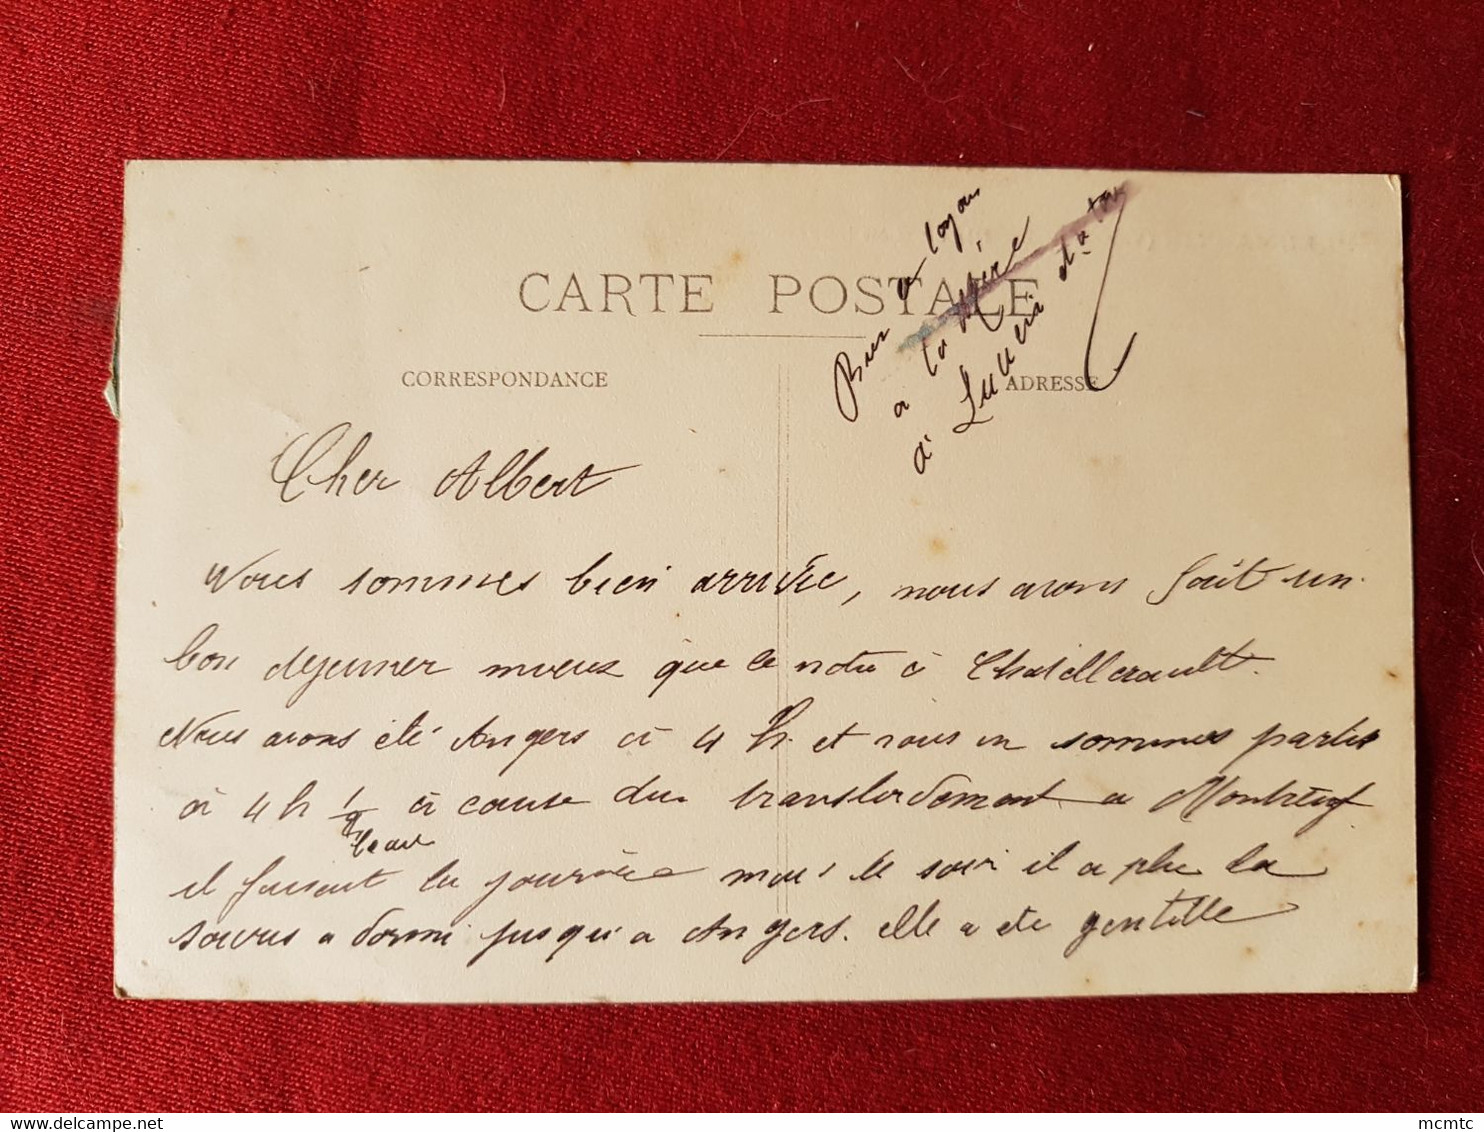 CARTE POSTALE
CORRESPONDANCE
ADRESSE
a la Mère
à
Cher Albert
Nous sommes bien arrivée, nous avons fait un
bon dejeuner mieux que le notre à Chatellerault.
Nous avons été Angers à 4 h. et nous en sommes partis
à 4 h 1/2 à cause du transbordement a Montreuf
beau
il faisait la journée mais le soir il a plu la
souris a dormi jusqu'a Angers. elle a été gentille
mcmtc